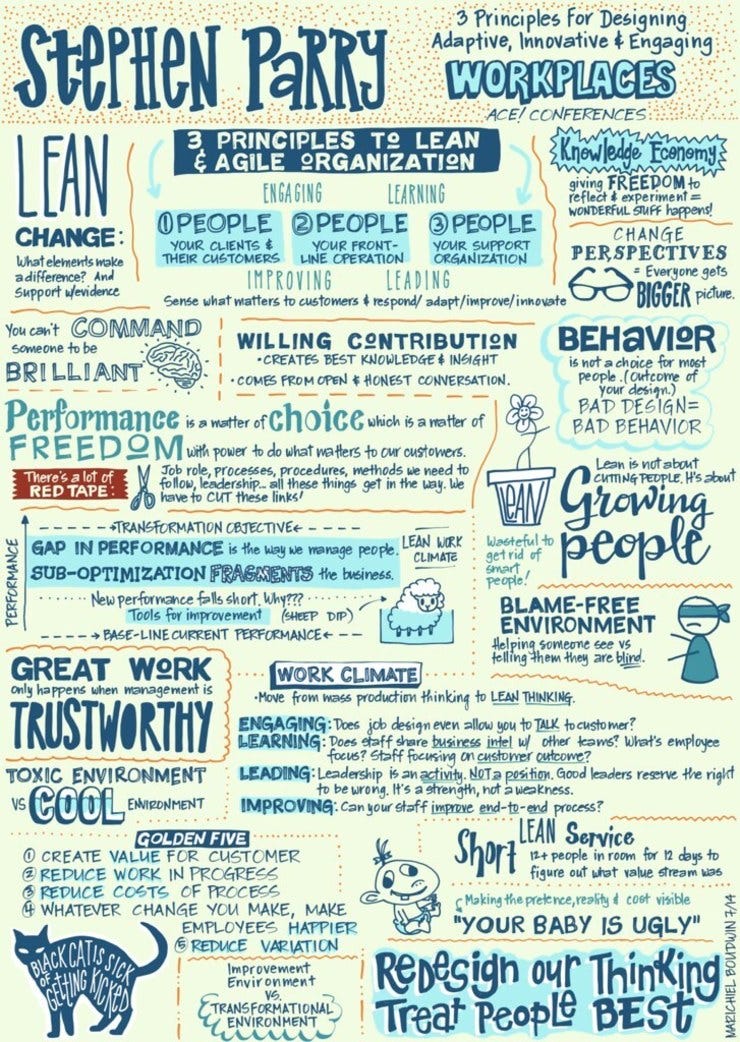 Stephen Parry
3 Principles For Designing
Adaptive, Innovative & Engaging
WORKPLACES
ACE! CONFERENCES
LEAN
CHANGE:
What elements make
a difference? And
support w/evidence
3 PRINCIPLES TO LEAN
& AGILE ORGANIZATION
ENGAGING LEARNING
① PEOPLE
YOUR CLIENTS &
THEIR CUSTOMERS
② PEOPLE
YOUR FRONT-
LINE OPERATION
③ PEOPLE
YOUR SUPPORT
ORGANIZATION
IMPROVING LEADING
Sense what matters to customers & respond/ adapt/improve/innovate
Knowledge Economy
giving FREEDOM to
reflect & experiment =
WONDERFUL STUFF happens!
CHANGE
PERSPECTIVES
= Everyone gets
BIGGER picture.
You can't COMMAND
someone to be
BRILLIANT
WILLING CONTRIBUTION
• CREATES BEST KNOWLEDGE & INSIGHT
• COMES FROM OPEN & HONEST CONVERSATION.
BEHAVIOR
is not a choice for most
people. (Outcome of
your design.)
BAD DESIGN=
BAD BEHAVIOR
Performance is a matter of choice which is a matter of
FREEDOM with power to do what matters to our customers.
There's a lot of
RED TAPE:
Job role, processes, procedures, methods we need to
follow, leadership... all these things get in the way. We
have to CUT these links!
LEAN
Lean is not about
CUTTING PEOPLE. It's about
Growing
people
Wasteful to
get rid of
smart
people!
PERFORMANCE
TRANSFORMATION OBJECTIVE
GAP IN PERFORMANCE is the way we manage people.
SUB-OPTIMIZATION FRAGMENTS the business.
LEAN WORK
CLIMATE
New performance falls short. Why???
Tools for improvement (SHEEP DIP)
BASE-LINE CURRENT PERFORMANCE
BLAME-FREE
ENVIRONMENT
Helping someone see vs
telling them they are blind.
GREAT WORK
only happens when management is
TRUSTWORTHY
WORK CLIMATE
• Move from mass production thinking to LEAN THINKING.
ENGAGING: Does job design even allow you to TALK to customer?
LEARNING: Does staff share business intel w/ other teams? What's employee
focus? Staff focusing on customer outcome?
LEADING: Leadership is an activity. NOT a position. Good leaders reserve the right
to be wrong. It's a strength, not a weakness.
IMPROVING: Can your staff improve end-to-end process?
TOXIC ENVIRONMENT
VS COOL ENVIRONMENT
GOLDEN FIVE
① CREATE VALUE FOR CUSTOMER
② REDUCE WORK IN PROGRESS
③ REDUCE COSTS OF PROCESS
④ WHATEVER CHANGE YOU MAKE, MAKE
EMPLOYEES HAPPIER
⑤ REDUCE VARIATION
Short LEAN Service
12+ people in room for 12 days to
figure out what value stream was
Making the pretence, reality & cost visible
"YOUR BABY IS UGLY"
BLACK CAT IS SICK
OF GETTING KICKED
Improvement
Environment
VS.
TRANSFORMATIONAL
ENVIRONMENT
Redesign our Thinking
Treat People BEST
MARICHIEL BOUDWIN 7/14